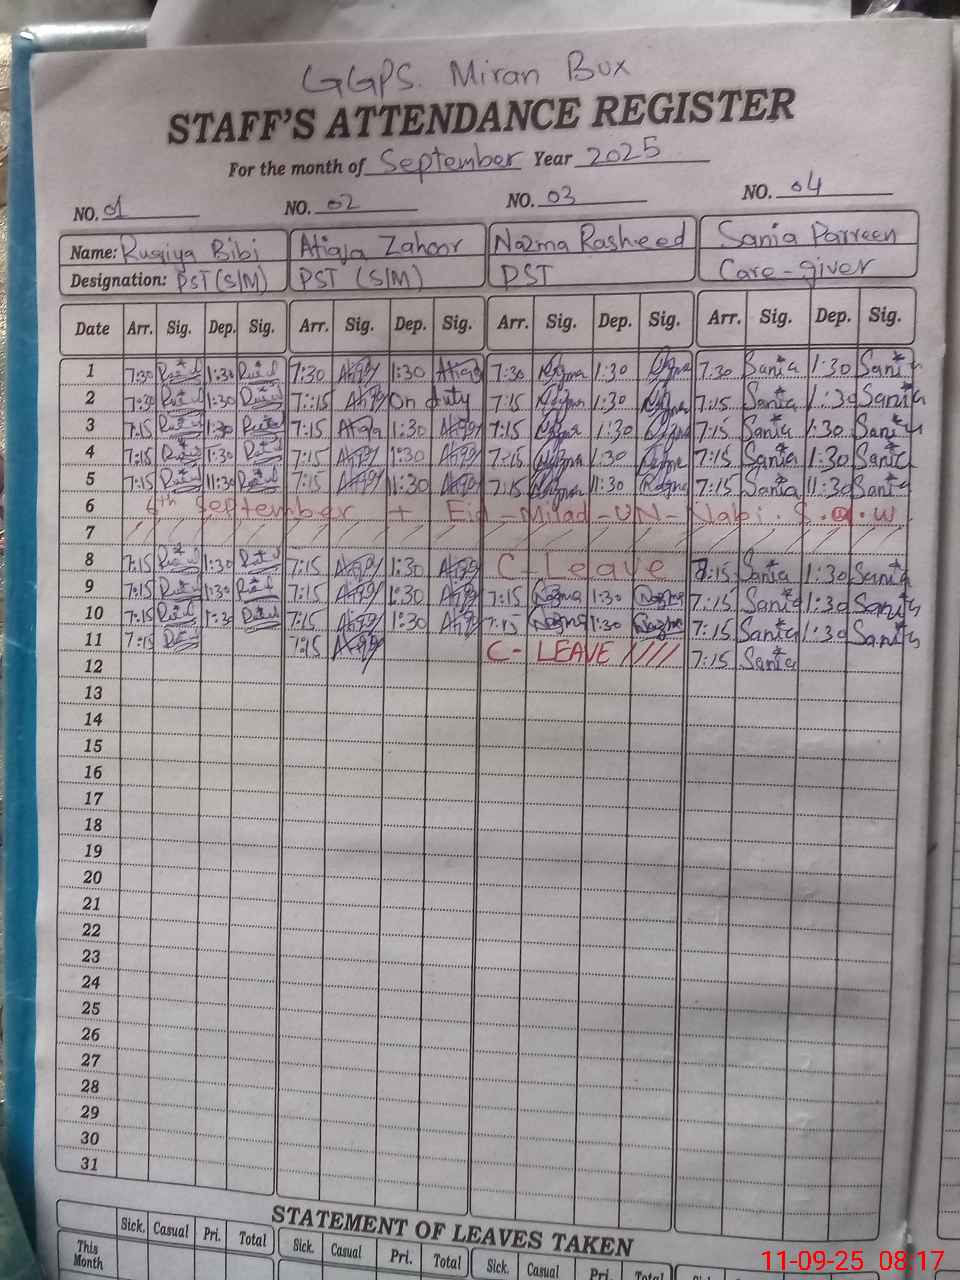 GGPS. Miran Bux
STAFF'S ATTENDANCE REGISTER
For the month of September Year 2025
NO. 01 NO. 02 NO. 03 NO. 04
Name: Ruqiya Bibi Atiqa Zahoor Nazma Rasheed Sania Parveen
Designation: PST (S/M) PST (S/M) PST Care-giver
Date Arr. Sig. Dep. Sig. Arr. Sig. Dep. Sig. Arr. Sig. Dep. Sig. Arr. Sig. Dep. Sig.
1 7:30 1:30 7:30 Atiqa 1:30 Atiqa 7:30 Nazma 1:30 7:30 Sania 1:30 Sania
2 7:30 1:30 7:15 Atiqa On duty 7:15 Nazma 1:30 Nazma 7:15 Sania 1:30 Sania
3 7:15 1:30 7:15 Atiqa 1:30 Atiqa 7:15 Nazma 1:30 7:15 Sania 1:30 Sania
4 7:15 1:30 7:15 Atiqa 1:30 Atiqa 7:15 Nazma 1:30 Nazma 7:15 Sania 1:30 Sania
5 7:15 11:30 7:15 Atiqa 11:30 Atiqa 7:15 Nazma 11:30 Nazma 7:15 Sania 11:30 Sania
6 6th September + Eid-Milad-UN-Nabi. S.a.w
7
8 7:15 1:30 7:15 Atiqa 1:30 Atiqa C-Leave 7:15 Sania 1:30 Sania
9 7:15 1:30 7:15 Atiqa 1:30 Atiqa 7:15 Nazma 1:30 Nazma 7:15 Sania 1:30 Sania
10 7:15 1:30 7:15 Atiqa 1:30 Atiqa 7:15 Nazma 1:30 Nazma 7:15 Sania 1:30 Sania
11 7:15 7:15 Atiqa C-LEAVE 7:15 Sania
12
13
14
15
16
17
18
19
20
21
22
23
24
25
26
27
28
29
30
31
STATEMENT OF LEAVES TAKEN
Sick. Casual Pri. Total Sick. Casual Pri. Total Sick. Casual Pri. Total Sick. Casual
This Month
11-09-25 08:17